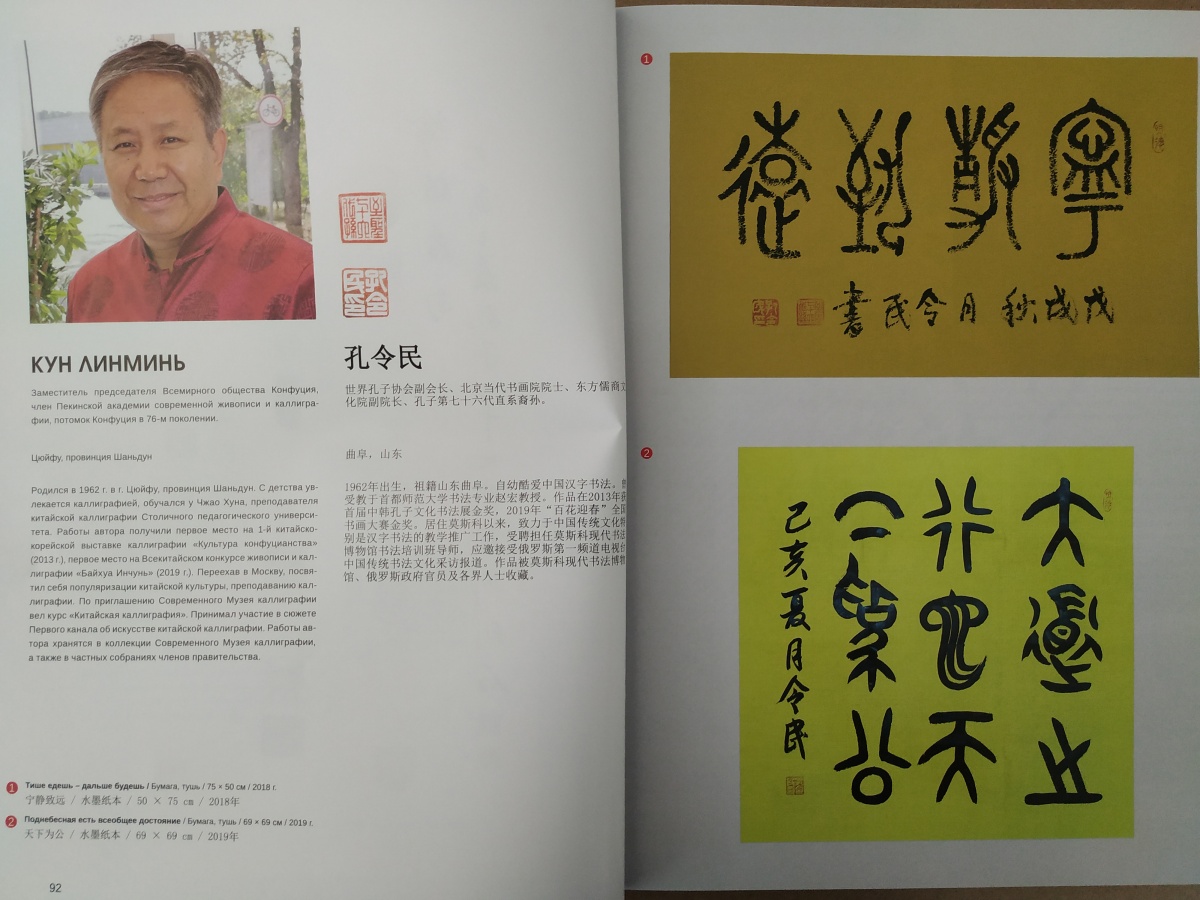 КУН ЛИНМИНЬ
Заместитель председателя Всемирного общества Конфуция,
член Пекинской академии современной живописи и каллигра-
фии, потомок Конфуция в 76-м поколении.
Цюйфу, провинция Шаньдун
Родился в 1962 г. в г. Цюйфу, провинция Шаньдун. С детства ув-
лекается каллиграфией, обучался у Чжао Хуна, преподавателя
китайской каллиграфии Столичного педагогического универси-
тета. Работы автора получили первое место на 1-й китайско-
корейской выставке каллиграфии «Культура конфуцианства»
(2013 г.), первое место на Всекитайском конкурсе живописи и кал-
лиграфии «Байхуа Инчунь» (2019 г.). Переехав в Москву, посвя-
тил себя популяризации китайской культуры, преподаванию кал-
лиграфии. По приглашению Современного Музея каллиграфии
вел курс «Китайская каллиграфия». Принимал участие в сюжете
Первого канала об искусстве китайской каллиграфии. Работы ав-
тора хранятся в коллекции Современного Музея каллиграфии,
а также в частных собраниях членов правительства.
孔令民印
孔令民
世界孔子协会副会长、北京当代书画院院士、东方儒商文
化院副院长、孔子第七十六代直系裔孙。
曲阜，山东
1962年出生，祖籍山东曲阜。自幼酷爱中国汉字书法。
受教于首都师范大学书法专业赵宏教授。作品在2013年获
首届中韩孔子文化书法展金奖，2019年“百花迎春”全国
书画大赛金奖。居住莫斯科以来，致力于中国传统文化特
别是汉字书法的教学推广工作，受聘担任莫斯科现代书法
博物馆书法培训班导师，应邀接受俄罗斯第一频道电视台
中国传统书法文化采访报道。作品被莫斯科现代书法博物
馆、俄罗斯政府官员及各界人士收藏。
1 Тише едешь – дальше будешь / Бумага, тушь / 75 × 50 см / 2018 г.
宁静致远 / 水墨纸本 / 50 × 75 cm / 2018年
2 Поднебесная есть всеобщее достояние / Бумага, тушь / 69 × 69 см / 2019 г.
天下为公 / 水墨纸本 / 69 × 69 cm / 2019年
92
1
寧靜致遠
戊戌秋月令民書
2
大道之
行也天
下為公
己亥夏月令民